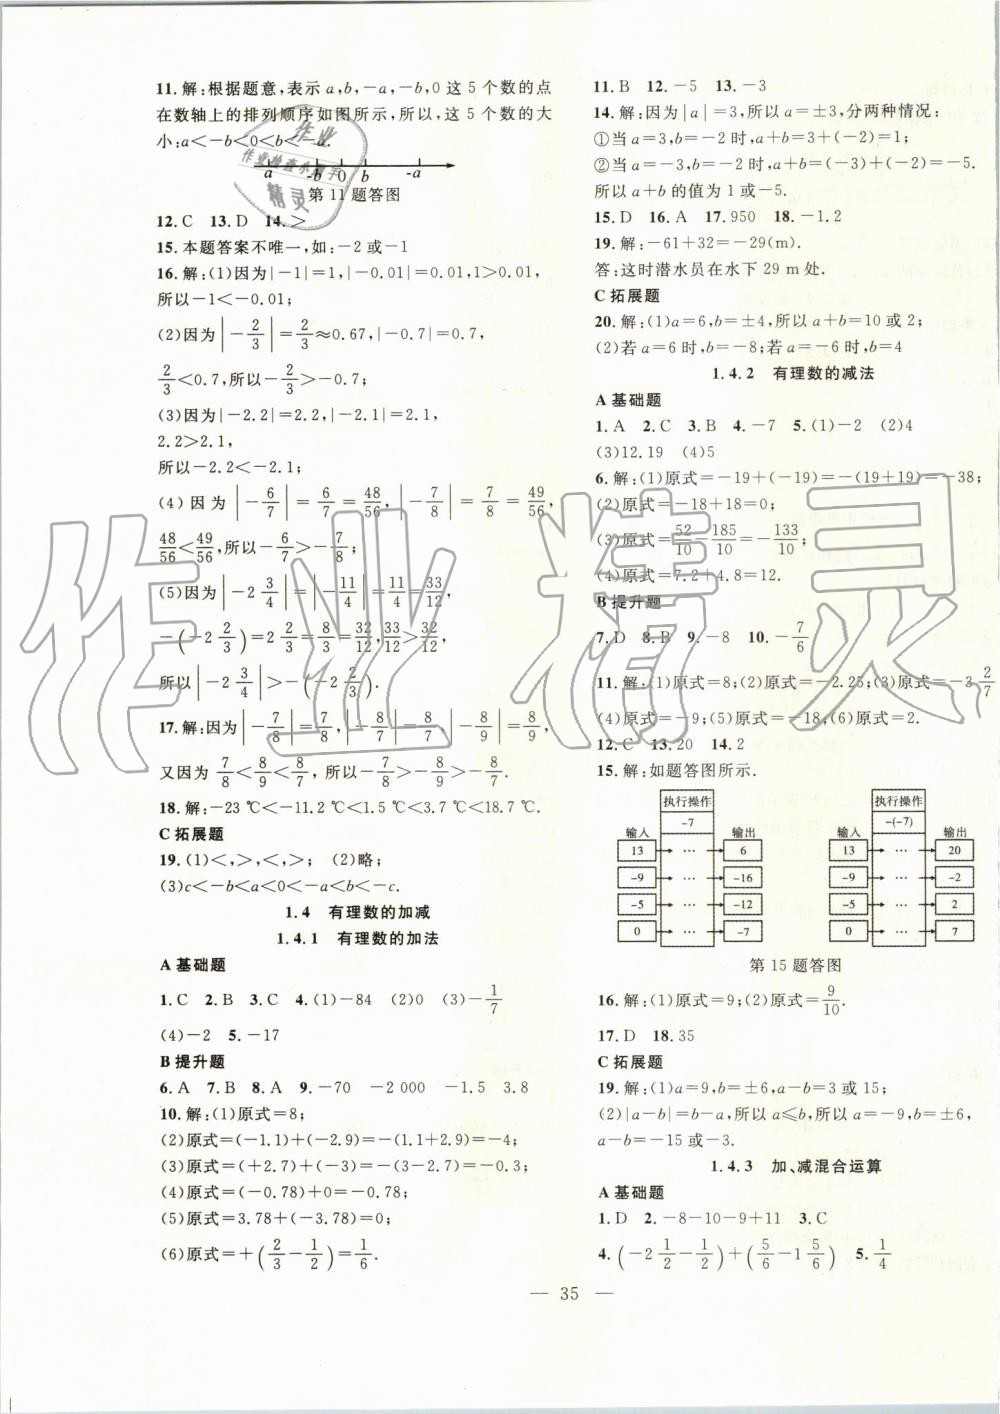 11.解:根据题意,表示a,b,-a,-b,0这5个数的点
在数轴上的排列顺序如图所示,所以,这5个数的大
小:a<-b<0<b<-a.
a -b 0 b -a
第11题答图
12.C 13.D 14.>
15.本题答案不唯一,如:-2或-1
16.解:(1)因为|-1|=1,|-0.01|=0.01,1>0.01,
所以-1<-0.01;
(2)因为|-2/3|=2/3≈0.67,|-0.7|=0.7,
2/3<0.7,所以-2/3>-0.7;
(3)因为|-2.2|=2.2,|-2.1|=2.1,
2.2>2.1,
所以-2.2<-2.1;
(4)因为|-6/7|=6/7=48/56,|-7/8|=7/8=49/56,
48/56<49/56,所以-6/7>-7/8;
(5)因为|-2 3/4|=|-11/4|=11/4=33/12,
-(-2 2/3)=2 2/3=8/3=32/12,33/12>32/12,
所以|-2 3/4|>-(-2 2/3).
17.解:因为|-7/8|=7/8,|-8/7|=8/7,|-8/9|=8/9,
又因为7/8<8/9<8/7,所以-7/8>-8/9>-8/7.
18.解:-23 ℃<-11.2 ℃<1.5 ℃<3.7 ℃<18.7 ℃.
C拓展题
19.(1)<,>,<,>; (2)略;
(3)c<-b<a<0<-a<b<-c.
1.4 有理数的加减
1.4.1 有理数的加法
A基础题
1.C 2.B 3.C 4.(1)-84 (2)0 (3)-1/7
(4)-2 5.-17
B提升题
6.A 7.B 8.A 9.-70 -2 000 -1.5 3.8
10.解:(1)原式=8;
(2)原式=(-1.1)+(-2.9)=-(1.1+2.9)=-4;
(3)原式=(+2.7)+(-3)=-(3-2.7)=-0.3;
(4)原式=(-0.78)+0=-0.78;
(5)原式=3.78+(-3.78)=0;
(6)原式=+(2/3-1/2)=1/6.
11.B 12.-5 13.-3
14.解:因为|a|=3,所以a=±3,分两种情况:
①当a=3,b=-2时,a+b=3+(-2)=1;
②当a=-3,b=-2时,a+b=(-3)+(-2)=-5.
所以a+b的值为1或-5.
15.D 16.A 17.950 18.-1.2
19.解:-61+32=-29(m).
答:这时潜水员在水下29 m处.
C拓展题
20.解:(1)a=6,b=±4,所以a+b=10或2;
(2)若a=6时,b=-8;若a=-6时,b=4
1.4.2 有理数的减法
A基础题
1.A 2.C 3.B 4.-7 5.(1)-2 (2)4
(3)12.19 (4)5
6.解:(1)原式=-19+(-19)=-(19+19)=-38;
(2)原式=-18+18=0;
(3)原式=52/10-185/10=-133/10;
(4)原式=7.2+4.8=12.
B提升题
7.D 8.B 9.-8 10.-7/6
11.解:(1)原式=8;(2)原式=-2.25;(3)原式=-3 2/7
(4)原式=-9;(5)原式=-18;(6)原式=2.
12.C 13.20 14.2
15.解:如题答图所示.
执行操作 执行操作
-7 -(-7)
输入 输出 输入 输出
13 … 6 13 … 20
-9 … -16 -9 … -2
-5 … -12 -5 … 2
0 … -7 0 … 7
第15题答图
16.解:(1)原式=9;(2)原式=9/10.
17.D 18.35
C拓展题
19.解:(1)a=9,b=±6,a-b=3或15;
(2)|a-b|=b-a,所以a≤b,所以a=-9,b=±6,
a-b=-15或-3.
1.4.3 加、减混合运算
A基础题
1.D 2.-8-10-9+11 3.C
4.(-2 1/2-1/2)+(5/6-1 5/6) 5.1/4
— 35 —
作业精灵
作业
作业检查小助手
精灵